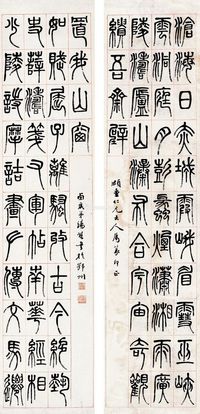 滄海日赤城霞峨眉雪巫峽
雲洞庭月彭蠡煙瀟湘雨廣
陵濤廬山瀑布合宇宙奇觀
繪吾齋壁
仁兄大人屬篆即正
少陵詩摩詰畫左傳文馬遷
史薛濤箋右軍帖南華經相
如賦屈子離騷收古今絕藝
置我山窗